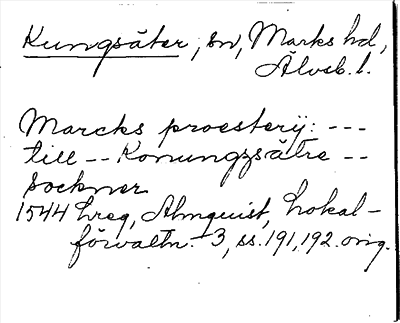 Kungsäter, sn, Marks hd,
Älvsb. l.
Marcks proesterij: ---
till -- Konungzsätre --
Sockner
1544 hreg, Almquist, Lokal-
förvaltn. 3, ss. 191, 192. orig.